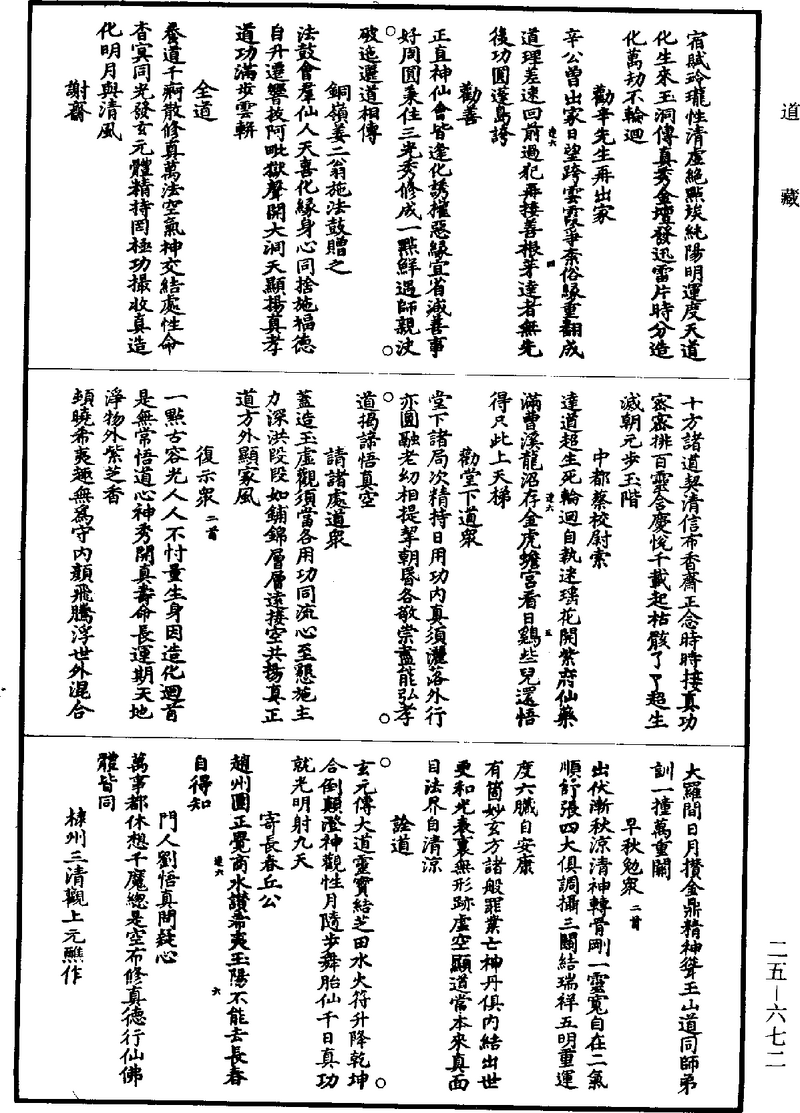 道藏
宿賦玲瓏性清虛絕點埃純陽明運度天道
化生來玉洞傳真秀金壇發迅雷片時分造
化萬劫不輪迴
勸辛先生再出家
辛公曾出家日望跨雲霞爭柰俗緣重翻成
道理差速回前過犯再接善根芽達者無先
後功圓蓬島誇
勸善
正直神仙會皆逢化誘摧惡緣宜省滅善事
好周圓秉住三光秀修成一點鮮遇師親決
破迤邐道相傳
銅嶺姜二翁施法鼓贈之
法鼓會羣仙人天喜化緣身心同捨施福德
自升遷響披阿毗獄聲開大洞天顯揚真孝
道功滿步雲軿
全道
養道千痾散修真萬法空氣神交結處性命
杳冥同光發玄元體精持罔極功撮收真造
化明月與清風
謝齋
十方諸道契清信布香齋正念時時接真功
密密排百靈合慶悅千載起枯骸了了超生
滅朝元步玉階
中都蔡校尉索
達道超生死輪迴自執迷瑤花開紫府仙藥
滿曹溪龍沼存金虎蟾宮看日鷄些兒還悟
得只此上天梯
勸堂下道衆
堂下諸局次精持日用功內真須灑落外行
亦圓融老幼相提挈朝昏各敬崇盡能弘孝
道揭諦悟真空
請諸處道衆
蓋造玉虛觀須當各用功同流心至懇施主
力深洪段段如鋪錦層層遠接空共揚真正
道方外顯家風
復示衆二首
一點古容光人人不忖量生身因造化迴首
是無常悟道心神秀開真壽命長運期天地
淨物外紫芝香
頻曉希夷趣無爲守內顏飛騰浮世外混合
大羅間日月攢金鼎精神聳玉山道同師弟
訓一撞萬重關
早秋勉衆二首
出伏漸秋涼清神轉骨剛一靈寬自在二氣
順舒張四大俱調攝三關結瑞祥五明重運
度六臓自安康
有箇妙玄方諸般罪業亡神丹俱內結出世
更和光表裏無形跡虛空顯道當本來真面
目法界自清涼
詮道
玄元傳大道靈寶結芝田水火符升降乾坤
合倒顛澄神觀性月隨步舞胎仙千日真功
就光明射九天
寄長春丘公
趙州圓正覺商水讚希夷玉陽不能去長春
自得知
門人劉悟真問疑心
萬事都休想千魔總是空布修真德行仙佛
體皆同
棣州三清觀上元醮作
二五—六七二